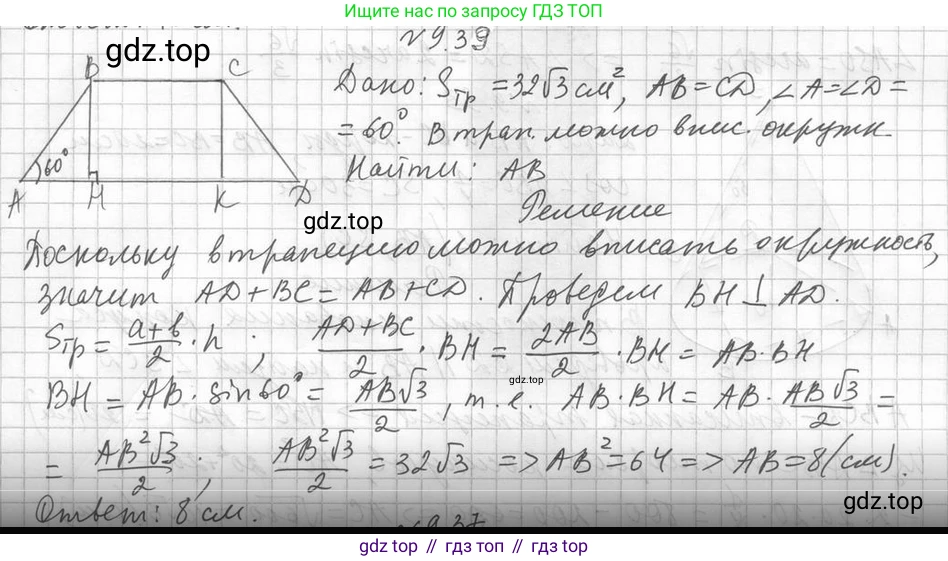 Ищите нас по запросу ГДЗ ТОП
gdz.top
N 9.39
Дано: Sтр = 32√3 см², AB = CD, ∠A = ∠D =
= 60°. В трап. можно впис. окружн.
Найти: AB
B C
60°
A H K D
gdz.top
Решение
Поскольку в трапецию можно вписать окружность,
значит AD + BC = AB + CD. Проведем BH ⊥ AD.
Sтр = (a+b)/2 · h ; (AD+BC)/2 · BH = 2AB/2 · BH = AB · BH
gdz.top
BH = AB · sin60° = AB√3/2, т.е. AB · BH = AB · AB√3/2 =
= AB²√3/2 ; AB²√3/2 = 32√3 => AB² = 64 => AB = 8 (см).
gdz.top
Ответ: 8 см.
N 9.37
gdz.top // гдз топ // gdz top